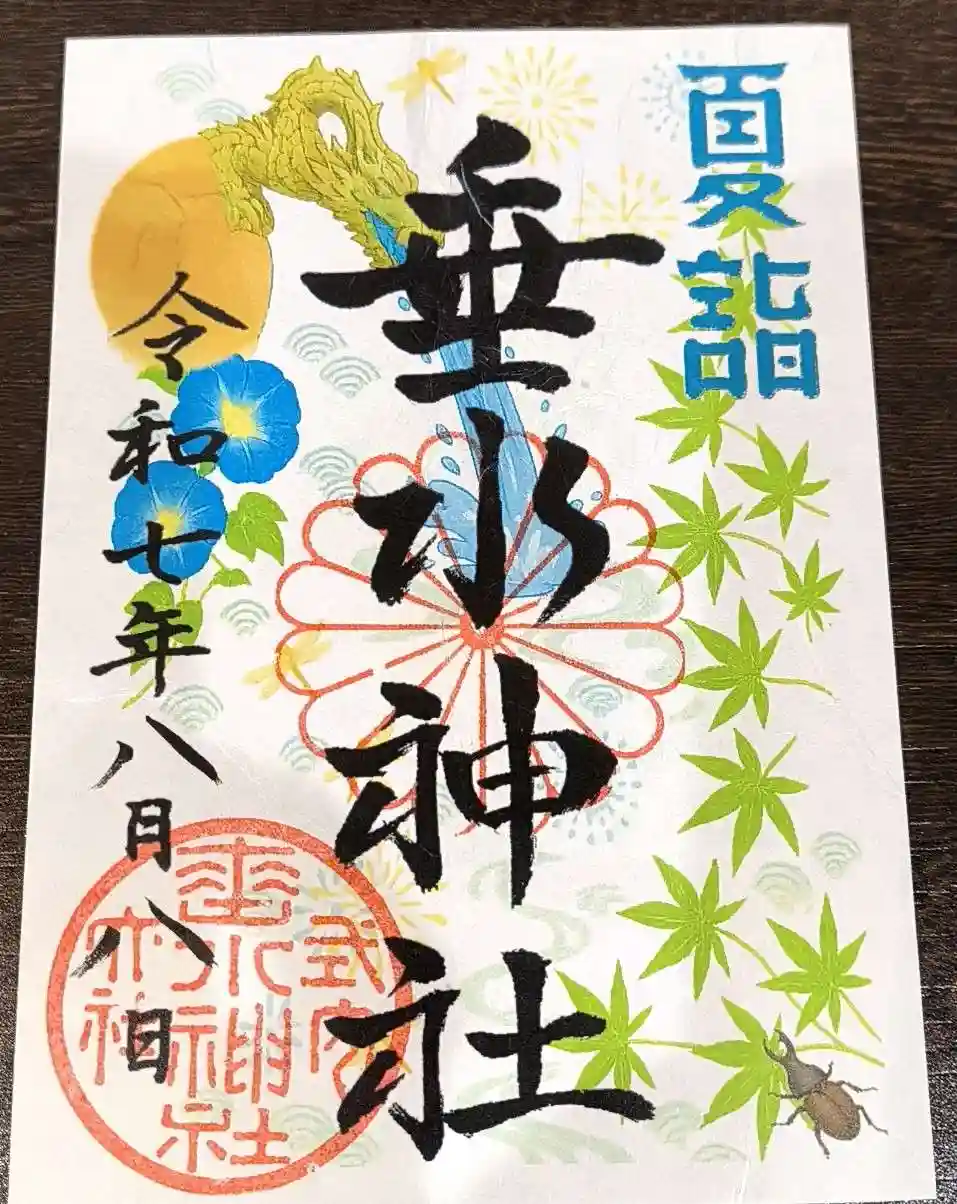 夏詣
垂水神社
令和七年八月八日
式内
垂水神社
大社